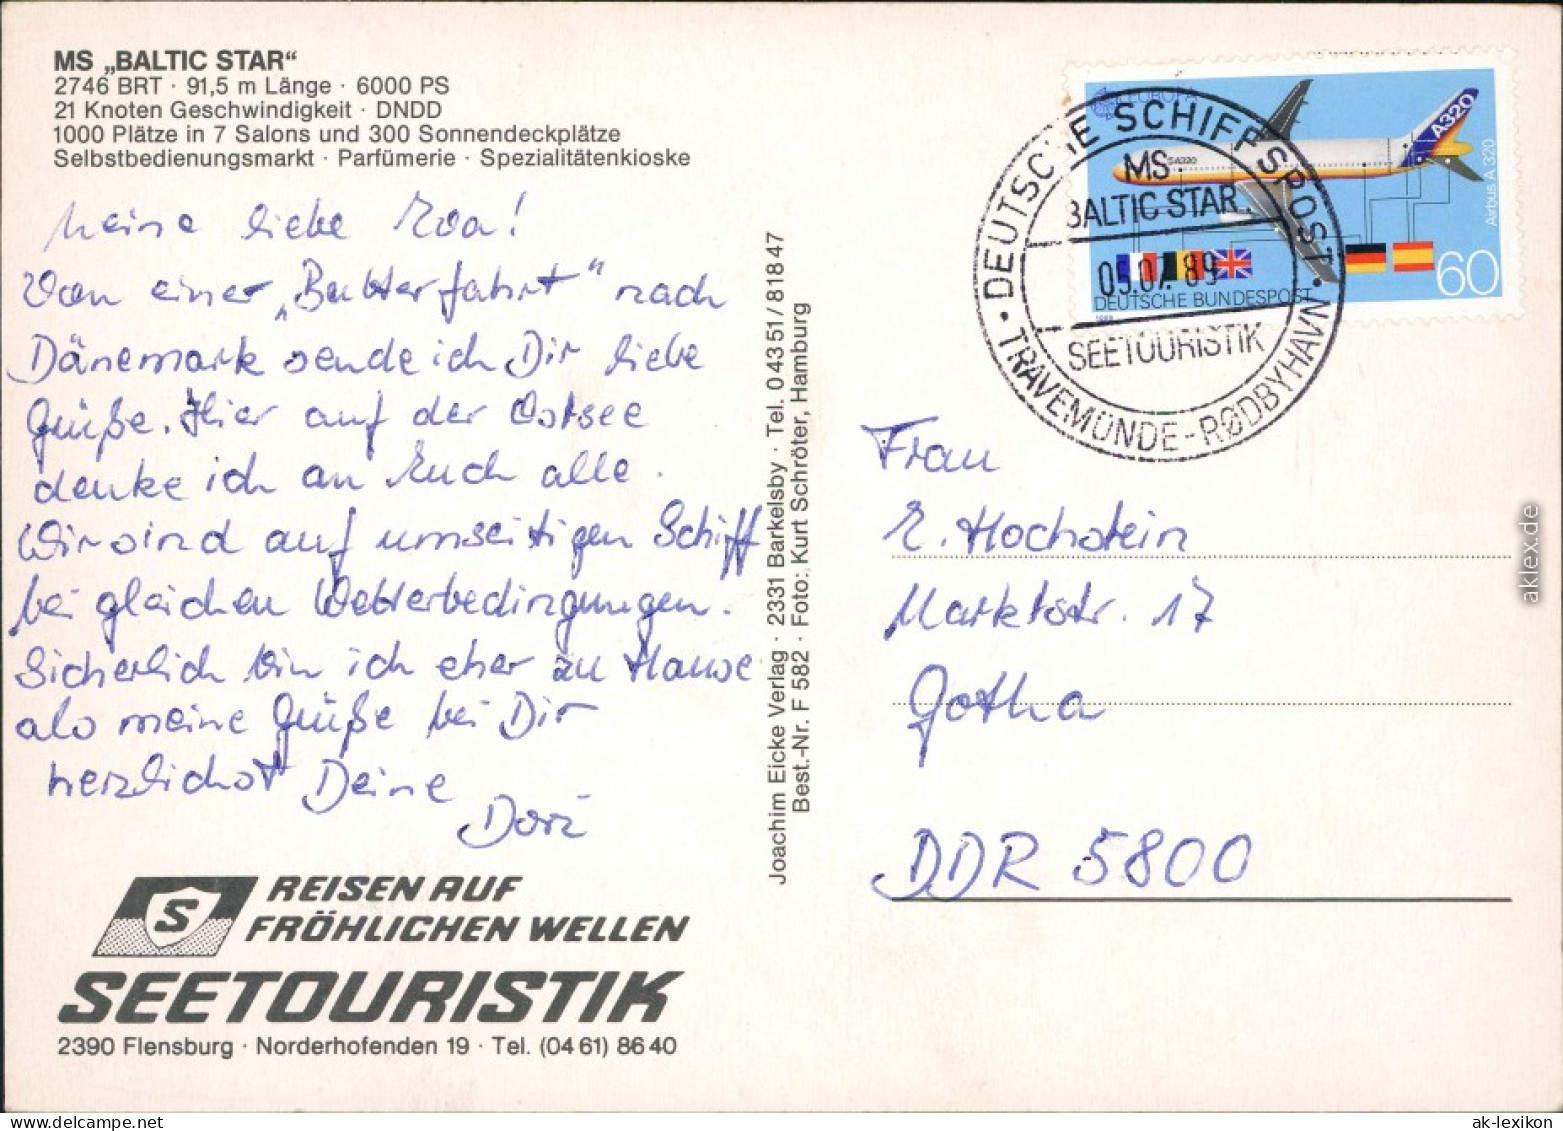 MS „BALTIC STAR“
2746 BRT · 91,5 m Länge · 6000 PS
21 Knoten Geschwindigkeit · DNDD
1000 Plätze in 7 Salons und 300 Sonnendeckplätze
Selbstbedienungsmarkt · Parfümerie · Spezialitätenkioske
Meine liebe Eva!
Von einer „Butterfahrt“ nach
Dänemark sende ich Dir liebe
Grüße. Hier auf der Ostsee
denke ich an Euch alle.
Wir sind auf umseitigen Schiff
bei gleichen Wetterbedingungen.
Sicherlich bin ich eher zu Hause
als meine Grüße bei Dir
herzlichst Deine
REISEN AUF
FRÖHLICHEN WELLEN
S
SEETOURISTIK
2390 Flensburg · Norderhofenden 19 · Tel. (04 61) 86 40
Joachim Eicke Verlag · 2331 Barkelsby · Tel. 0 43 51 / 8 18 47
Best.-Nr. F 582 · Foto: Kurt Schröter, Hamburg
EUROPA
A320
A320
Airbus A 320
60
DEUTSCHE BUNDESPOST
1988
DEUTSCHE SCHIFFSPOST
MS
BALTIC STAR
05.07.89
SEETOURISTIK
TRAVEMÜNDE-RØDBYHAVN
Frau
E. Hochstein
Marktstr. 17
Gotha
DDR 5800
aklex.de
ak-lexikon